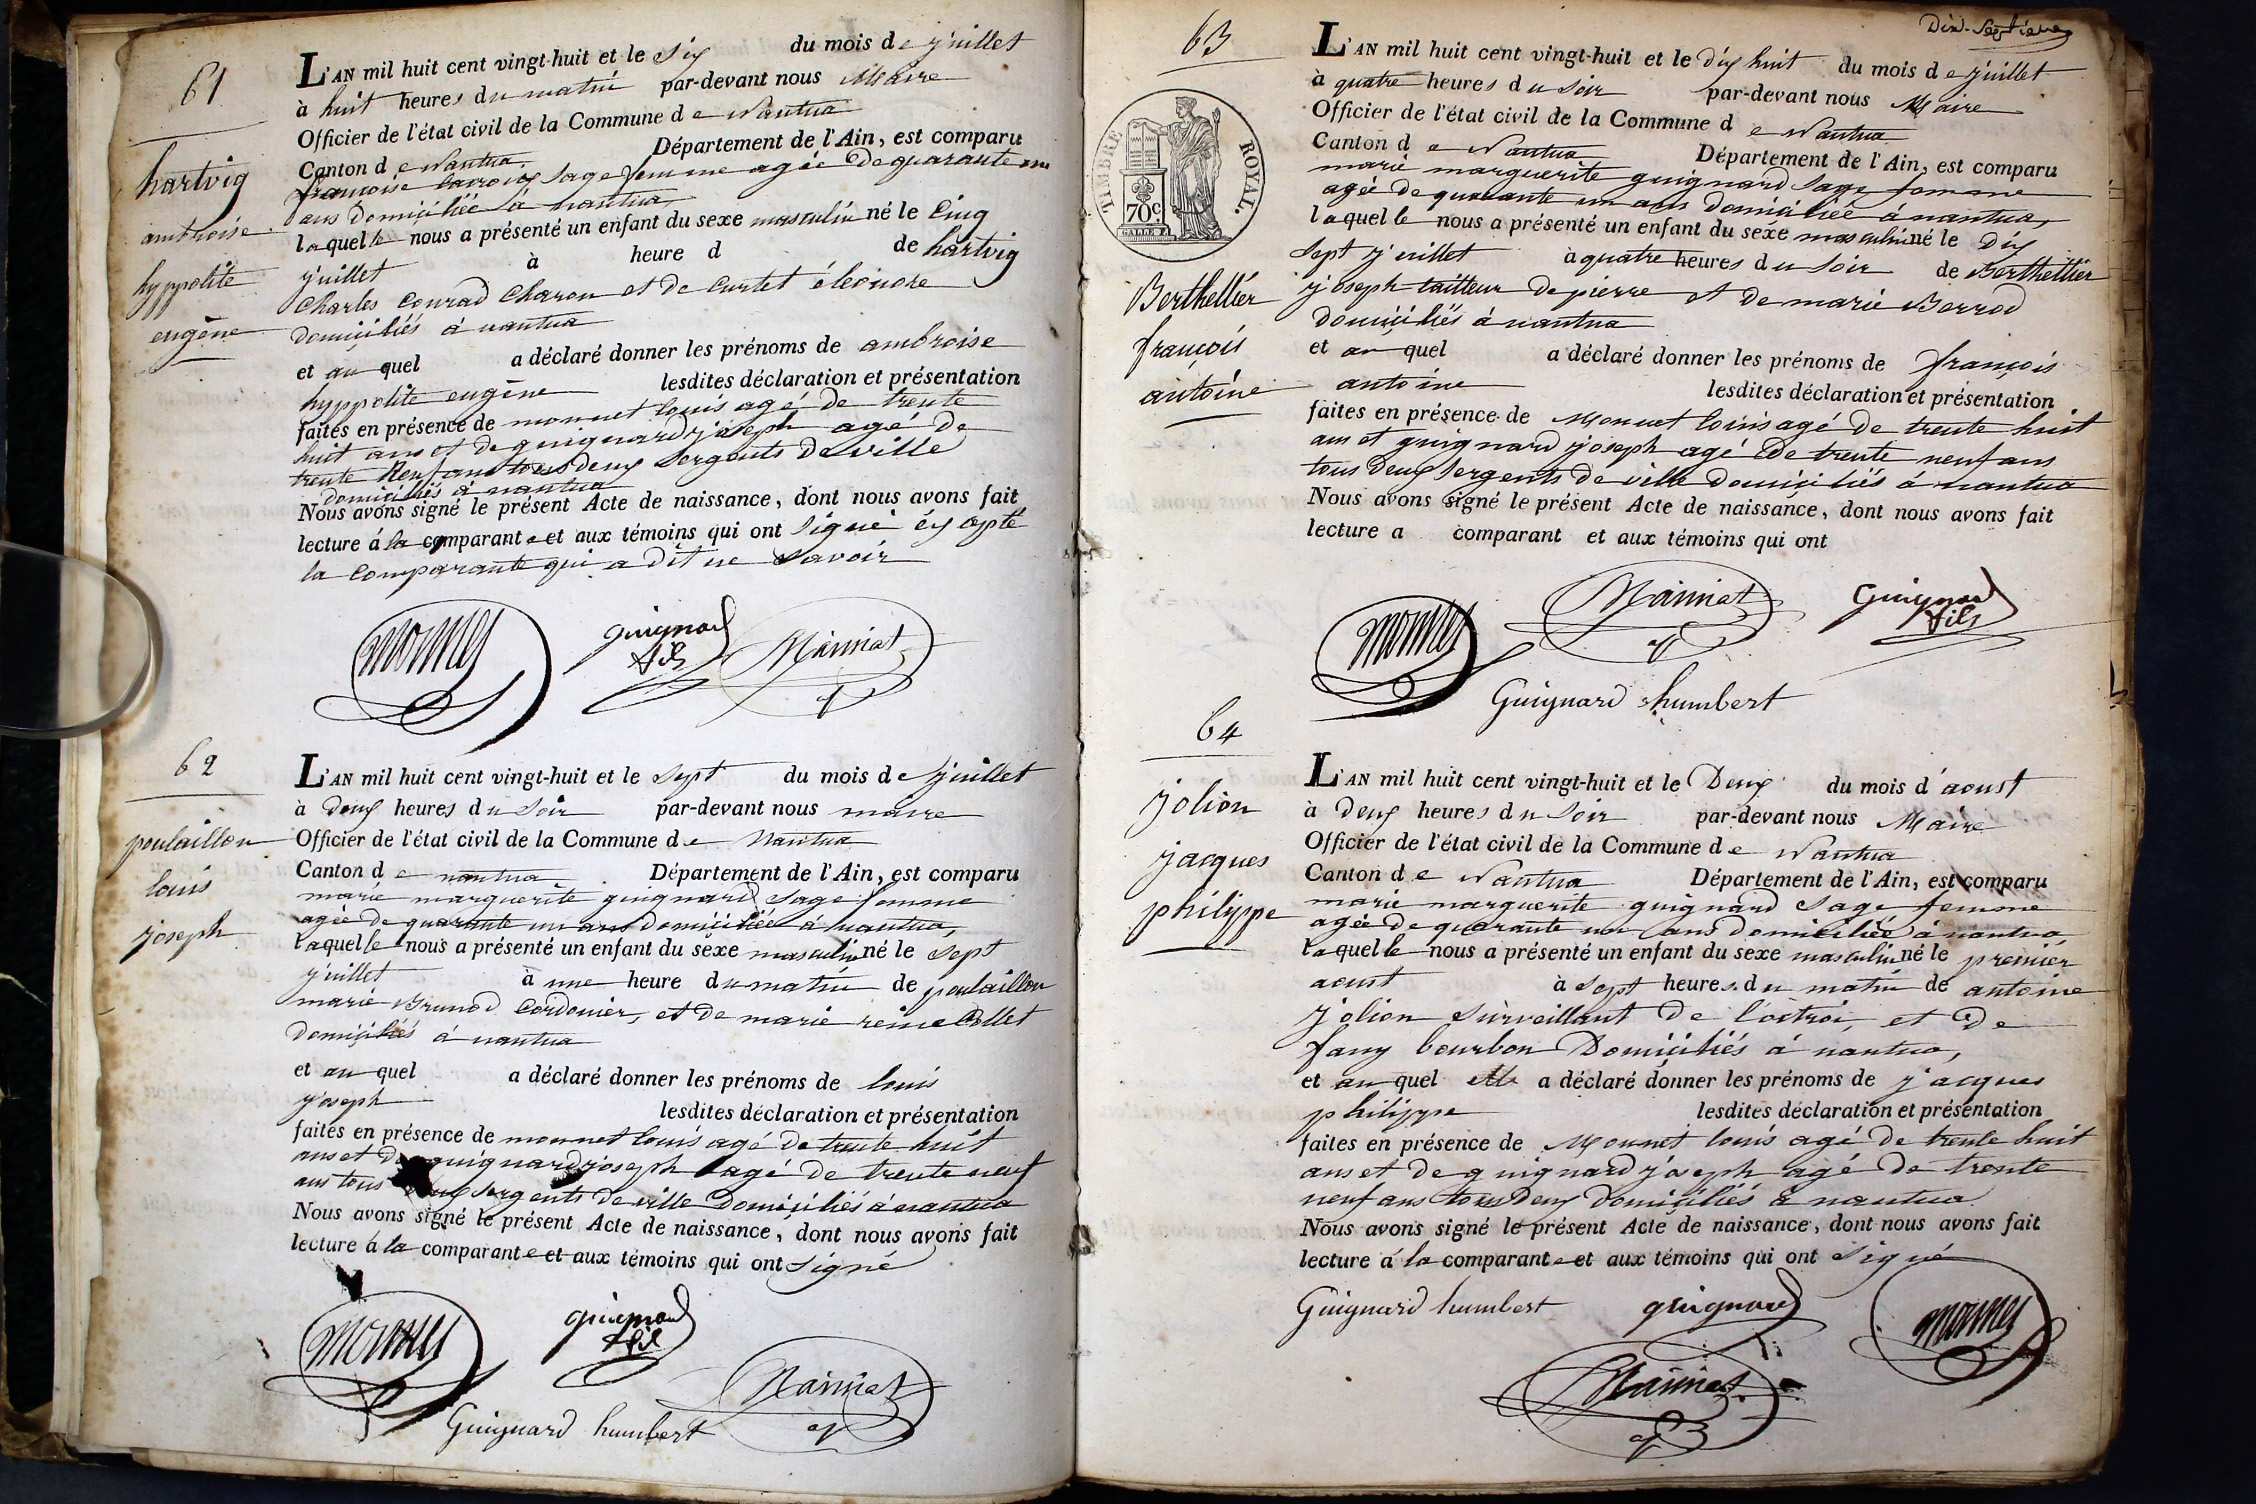 61
hartvig
ambroise
hyppolite
eugène
L'AN mil huit cent vingt-huit et le six du mois de juillet
à huit heures du matin par-devant nous Maire
Officier de l'état civil de la Commune de Nantua
Canton de Nantua Département de l'Ain, est comparu
françoise sage femme agée de quarante un
ans domiciliée à nantua,
laquelle nous a présenté un enfant du sexe masculin né le Cinq
juillet à heure d de hartvig
Charles Conrad Charon et de Curtet éleonore
domiciliés à nantua
et auquel a déclaré donner les prénoms de ambroise
hyppolite eugène lesdites déclaration et présentation
faites en présence de monnet louis agé de trente
huit ans et de guignard joseph agé de
trente neuf ans tous deux Sergents de ville
domiciliés à nantua
Nous avons signé le présent Acte de naissance, dont nous avons fait
lecture à la comparante et aux témoins qui ont signé éxcepté
la comparante qui a dit ne savoir
monnet
Guignard
fils
62
poulaillon
louis
joseph
L'AN mil huit cent vingt-huit et le sept du mois de juillet
à deux heures du soir par-devant nous maire
Officier de l'état civil de la Commune de Nantua
Canton de nantua Département de l'Ain, est comparu
marie marguerite guignard sage femme
agée de quarante un ans domiciliée à nantua,
laquelle nous a présenté un enfant du sexe masculin né le sept
juillet à une heure du matin de poulaillon
marie Brunod Cordonier, et de marie reine Collet
domiciliés à nantua
et auquel a déclaré donner les prénoms de louis
joseph lesdites déclaration et présentation
faites en présence de monnet louis agé de trente huit
ans et de guignard joseph agé de trente neuf
ans tous deux sergents de ville domiciliés à nantua
Nous avons signé le présent Acte de naissance, dont nous avons fait
lecture à la comparante et aux témoins qui ont signé
monnet
guignard
fils
Guignard humbert
Dix-Septième
63
TIMBRE ROYAL.
70 c.
Berthellier
françois
antoine
L'AN mil huit cent vingt-huit et le dix huit du mois de juillet
à quatre heures du soir par-devant nous Maire
Officier de l'état civil de la Commune de Nantua
Canton de Nantua Département de l'Ain, est comparu
marie marguerite guignard sage femme
agée de quarante un ans domiciliée à nantua,
laquelle nous a présenté un enfant du sexe masculin né le dix
sept juillet à quatre heures du soir de Berthellier
joseph tailleur de pierre et de marie Berrod
domiciliés à nantua
et auquel a déclaré donner les prénoms de françois
antoine lesdites déclaration et présentation
faites en présence de Monnet louis agé de trente huit
ans et guignard joseph agé de trente neuf ans
tous deux sergents de ville domiciliés à nantua
Nous avons signé le présent Acte de naissance, dont nous avons fait
lecture a comparant et aux témoins qui ont
monnet
Guignard
fils
Guignard humbert
64
jolion
jacques
philippe
L'AN mil huit cent vingt-huit et le Deux du mois d'aoust
à deux heures du soir par-devant nous Maire
Officier de l'état civil de la Commune de Nantua
Canton de Nantua Département de l'Ain, est comparu
marie marguerite guignard sage femme
agée de quarante un ans domiciliée à nantua,
laquelle nous a présenté un enfant du sexe masculin né le premier
aoust à sept heures du matin de antoine
jolion surveillant de l'octroi, et de
fany bourbon Domiciliés à nantua,
et auquel elle a déclaré donner les prénoms de jacques
philippe lesdites déclaration et présentation
faites en présence de Monnet louis agé de trente huit
ans et de guignard joseph agé de trente
neuf ans tous deux domiciliés à nantua
Nous avons signé le présent Acte de naissance, dont nous avons fait
lecture à la comparante et aux témoins qui ont signé
Guignard humbert
guignard
monnet